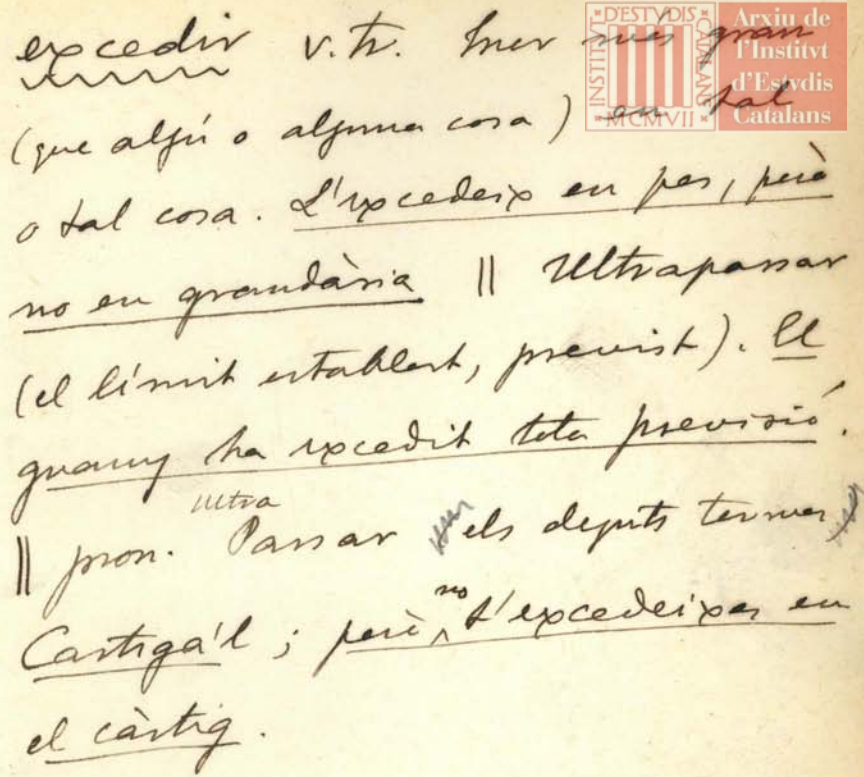 excedir v.tr. Ésser més gran
(que algú o alguna cosa) en tal
o tal cosa. L'excedeix en pes, però
no en grandària || Ultrapassar
(el límit establert, previst). El
guany ha excedit tota previsió.
ultra
|| pron. Passar els deguts termes
no
Castiga'l; però t'excedeixes en
el càstig.
INSTITVT D'ESTVDIS CATALANS
MCMVII
Arxiu de
l'Institvt
d'Estvdis
Catalans